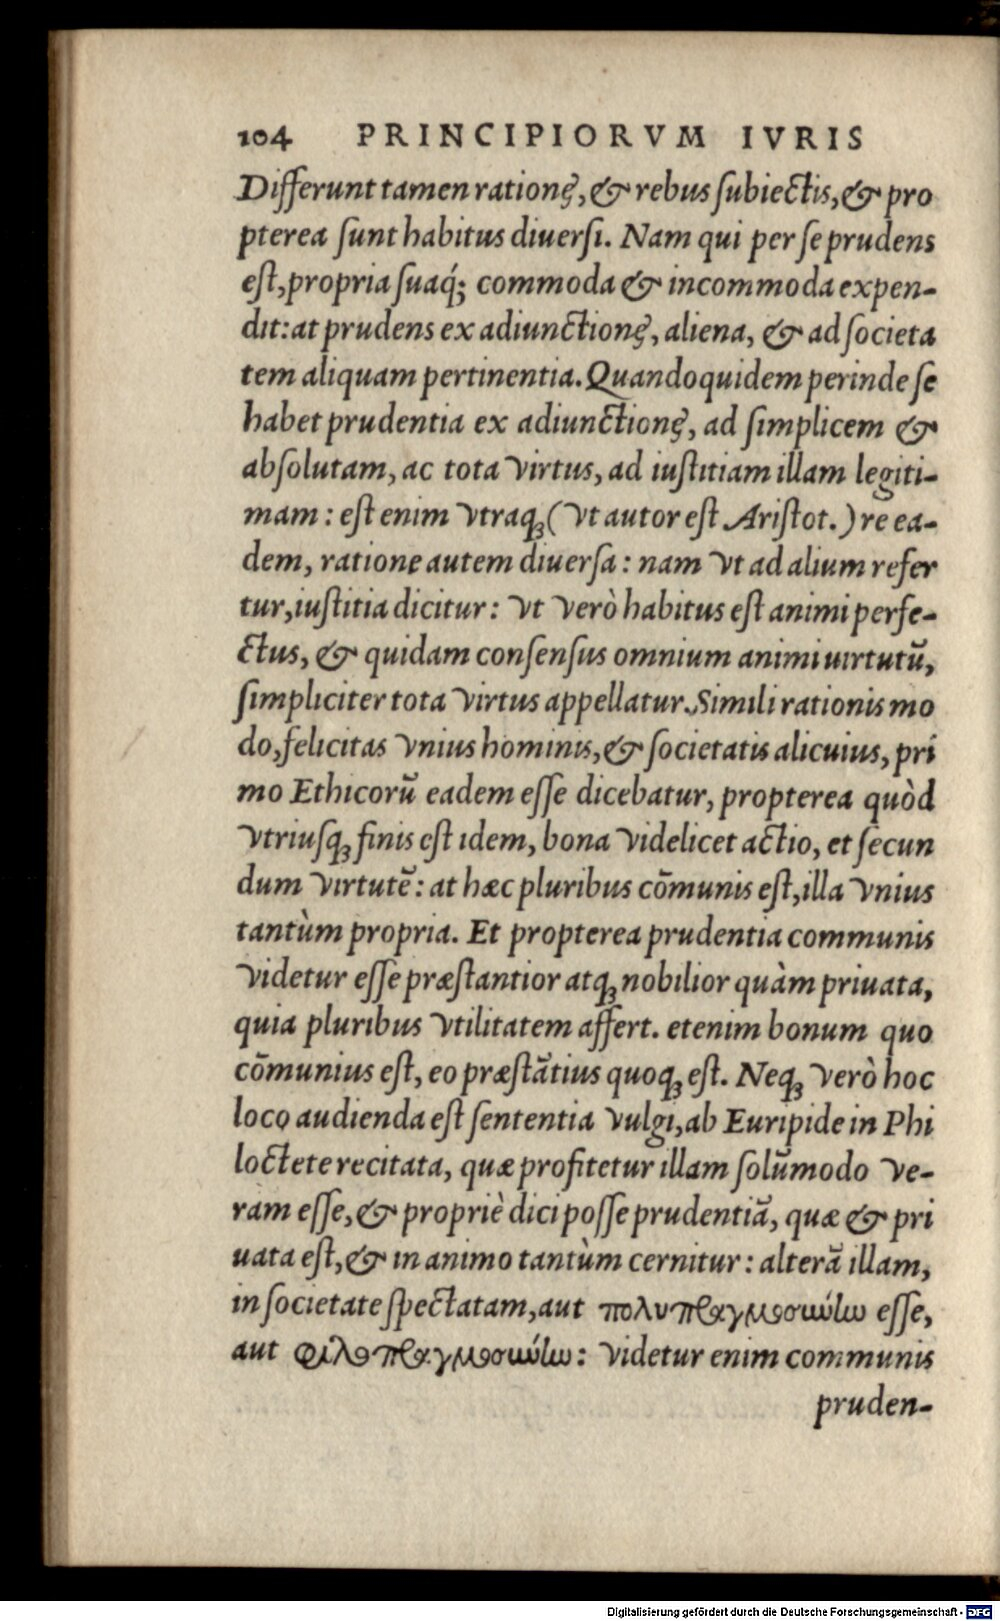 104 PRINCIPIORVM IVRIS
Differunt tamen rationę, & rebus subiectis, & pro
pterea sunt habitus diuersi. Nam qui per se prudens
est, propria suaq́; commoda & incommoda expen-
dit: at prudens ex adiunctionę, aliena, & ad societa
tem aliquam pertinentia. Quandoquidem perinde se
habet prudentia ex adiunctionę, ad simplicem &
absolutam, ac tota virtus, ad iustitiam illam legiti-
mam: est enim vtraq; (vt autor est Aristot.) re ea-
dem, ratione autem diuersa: nam vt ad alium refer
tur, iustitia dicitur: vt verò habitus est animi perfe-
ctus, & quidam consensus omnium animi uirtutū,
simpliciter tota virtus appellatur. Simili rationis mo
do, felicitas vnius hominis, & societatis alicuius, pri
mo Ethicorū eadem esse dicebatur, propterea quòd
vtriusq; finis est idem, bona videlicet actio, et secun
dum virtutē: at hæc pluribus cōmunis est, illa vnius
tantùm propria. Et propterea prudentia communis
videtur esse præstantior atq; nobilior quàm priuata,
quia pluribus vtilitatem affert. etenim bonum quo
cōmunius est, eo præstātius quoq; est. Neq; verò hoc
loco audienda est sententia vulgi, ab Euripide in Phi
loctete recitata, quæ profitetur illam solūmodo ve-
ram esse, & propriè dici posse prudentiā, quæ & pri
uata est, & in animo tantùm cernitur: alterā illam,
in societate spectatam, aut πολυπραγμοσύνην esse,
aut φιλοπραγμοσύνην: videtur enim communis
pruden-
Digitalisierung gefördert durch die Deutsche Forschungsgemeinschaft - DFG